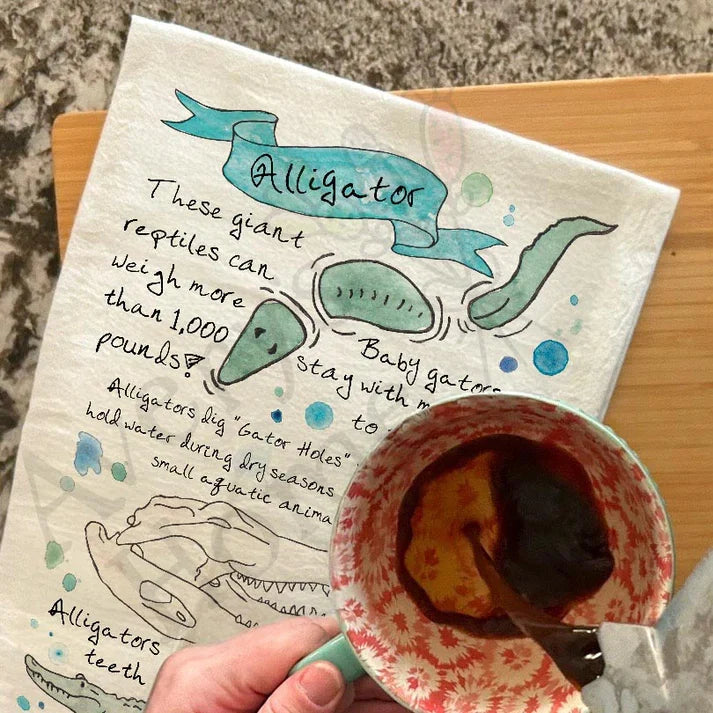 Alligator
These giant
reptiles can
weigh more
than 1,000
pounds!
Baby gators
stay with
to
Alligators dig "Gator Holes"
hold water during dry seasons
small aquatic
Alligators
teeth